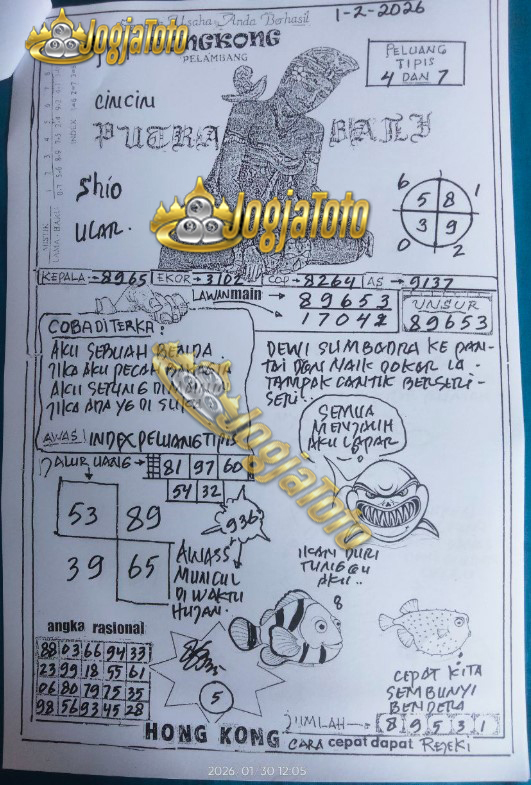 Usaha Anda Berhasil
1-2-2026
JogjaToto
NGKONG
PALEMBANG
PELUANG
TIPIS
4 DAN 7
cincin
PUTRA BALI
Shio
ULAR.
JogjaToto
6 1
5 8
3 9
0 2
KEPALA 8965 EKOR 3102 COP 8264 AS 9137
LAWAN main 89653
17042
UNSUR
89653
COBA DITERKA:
AKU SEBUAH BENDA.
JIKA AKU PECAH
AKU SERING DI
JIKA ADA YG DI SUKA
AWAS! INDEX PELUANG TIPIS
DEWI SUMBODRA KE PAN-
TAI DAN NAIK DOKAR IA
TAMPAK CANTIK BERSERI-
SERI..
JogjaToto
SEMUA
MENJAUH
AKU LAPAR
JALUR UANG 81 97 60
54 32
936
53 89
39 65
AWASS
MUNCUL
DI WAKTU
HUJAN.
IKAN DURI
TUNGGU
AKU..
8
angka rasional
88 03 66 94 33
23 99 18 55 61
06 80 79 75 35
98 56 93 45 28
5
CEPAT KITA
SEMBUNYI
BENDERA
JUMLAH 8 9 5 3 1
HONG KONG CARA cepat dapat REJEKI
2026-01-30 12:05